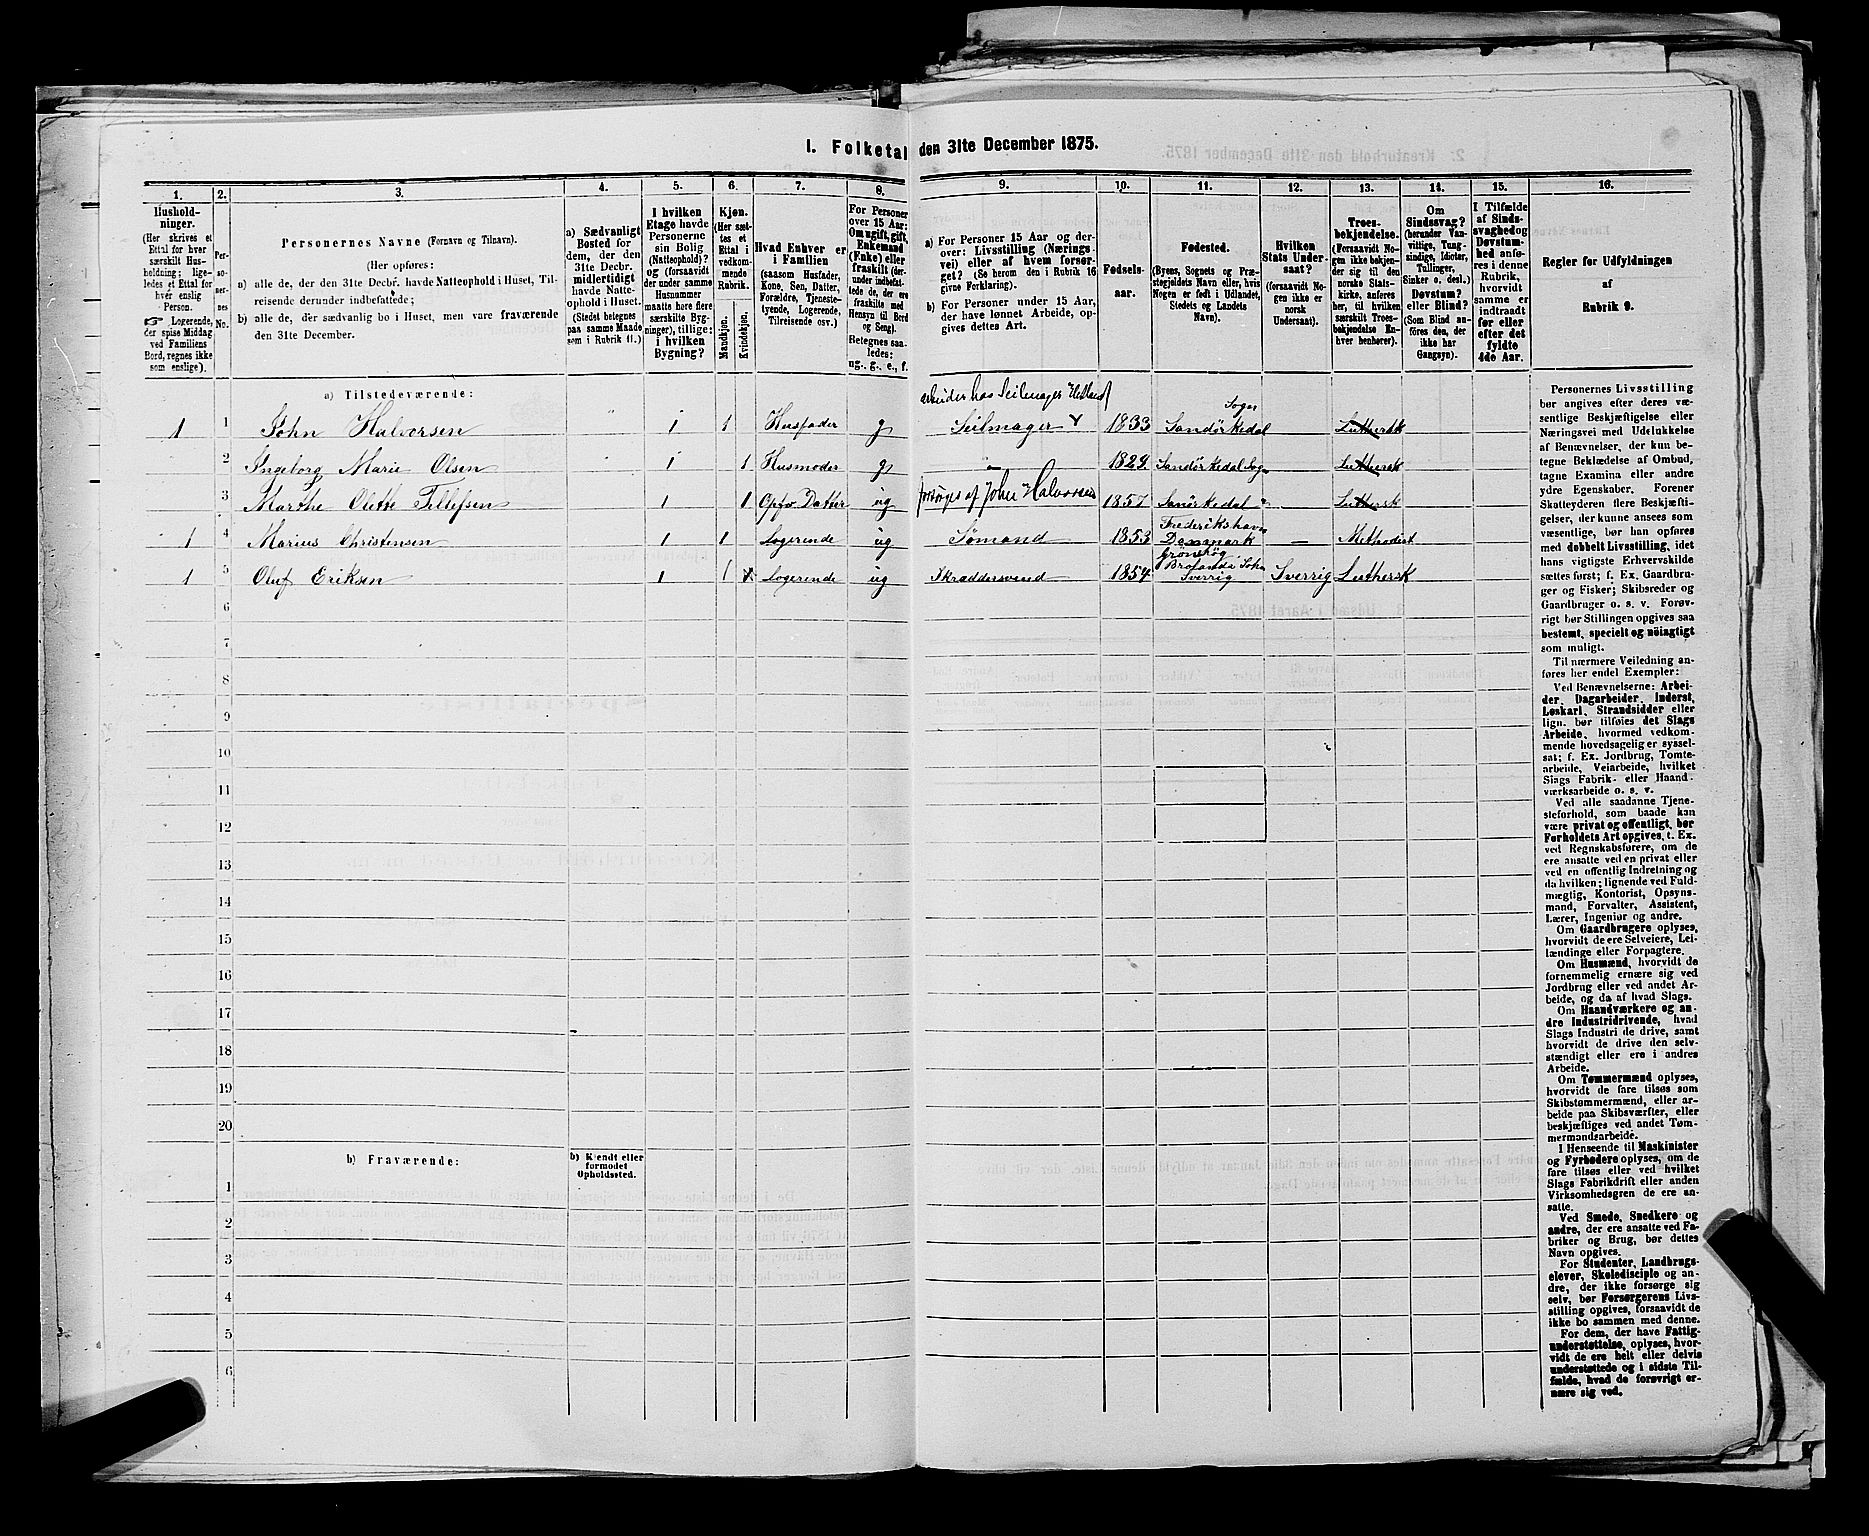 I. Folketal den 31te December 1875.
1. 2. 3. 4. 5. 6. 7. 8. 9. 10. 11. 12. 13. 14. 15. 16.
Husholdninger.
(Her skrives et
Ettal for hver
særskilt Husholdning;
ligeledes et Ettal for
hver enslig
Person.
☞ Logerende,
der spise Middag
ved Familiens
Bord, regnes ikke
som enslige).
Personernes No.
Personernes Navne (Fornavn og Tilnavn).
(Her opføres:
a) alle de, der den 31te Decbr. havde Natteophold i Huset, Tilreisende derunder indbefattede;
b) alle de, der sædvanlig bo i Huset, men vare fraværende
den 31te December.
a) Sædvanligt
Bosted for
dem, der den
31te Decbr.
midlertidigt
havde Natteophold
i Huset.
(Stedet betegnes
paa samme Maade
som i Rubrik 11.)
I hvilken
Etage havde
Personerne
sin Bolig
(Natteophold)?
og (forsaavidt
der under samme
Husnummer
maatte høre flere
særskilte Bygninger),
tillige:
i hvilken
Bygning?
Kjøn.
(Her sættes
et
Ettal i
vedkommende
Rubrik.
Mandkjøn.
Kvindekjøn.
Hvad Enhver er
i Familien
(saasom Husfader,
Kone, Søn, Datter,
Forældre, Tjenestetyende,
Logerende,
Tilreisende osv.)
For Personer
over 15 Aar:
Om ugift, gift,
Enkemand
(Enke) eller
fraskilt (derunder
indbefattede
de, der ere
fraskilte med
Hensyn til Bord
og Seng).
Betegnes saaledes:
ug., g., e., f.
a) For Personer 15 Aar og derover:
Livsstilling (Næringsvei)
eller af hvem forsørget?
(Se herom den i Rubrik 16
givne Forklaring).
b) For Personer under 15 Aar,
der have lønnet Arbeide, opgives
dettes Art.
Fødselsaar.
Fødested.
(Byens, Sognets og Præstegjeldets
Navn eller, hvis
Nogen er født i Udlandet,
Stedets og Landets
Navn).
Hvilken
Stats Undersaat?
(forsaavidt Nogen
ikke er
norsk
Undersaat).
Troesbekjendelse.
(Forsaavidt Nogen
ikke bekjender
sig til den
norske Statskirke,
anføres
her, til hvilken
særskilt Troesbekjendelse
Enhver
henhører).
Om
Sindssvag?
(herunder Vanvittige,
Tungsindige,
Idioter,
Tullinger,
Sinker o. desl.)
Døvstum?
eller Blind?
(Som Blind anføres
den, der
ikke har
Gangsyn).
I Tilfælde
af Sindssvaghed
og
Døvstumhed
anføres
i denne
Rubrik,
hvorvidt
samme er
indtraadt
før eller
efter det
fyldte
4de Aar.
Regler for Udfyldningen
af
Rubrik 9.
a) Tilstedeværende:
arbeider hos Seilmager
1 1 John Halvorsen 1 1 Husfader g Seilmager 1833 Sandökedal Sogn Luthersk
2 Ingeborg Marie Olsen 1 1 Husmoder g 1829 Sandökedal Sogn Luthersk
3 Marthe Olette Tellefsen 1 1 Opfo Datter ug forsørges af John Halvorsen 1857 Sanökedal Luthersk
1 4 Marius Christensen 1 1 Logerende ug Sømand 1853 Frederikshavn Danmark — Methodist
1 5 Oluf Eriksen 1 1 Logerende ug Skraddersvend 1854 Sverrig Sverrig Luthersk
6
7
8
9
10
11
12
13
14
15
16
17
18
19
20
b) Fraværende:
b) Kjendt eller
formodet
Opholdssted.
1
2
3
4
5
6
Personernes Livsstilling
bør angives efter deres væsentlige
Beskjæftigelse eller
Næringsvei med Udelukkelse
af Benævnelser, der kun betegne
Beklædelse af Ombud,
tagne Examina eller andre
ydre Egenskaber. Forener
Skatteyderen flere Beskjæftigelser,
der kunne ansees som
væsentlige, bør han opføres
med dobbelt Livsstilling, idet
hans vigtigste Erhvervskilde
sættes først; f. Ex. Gaardbruger
og Fisker; Skibsreder og
Gaardbruger o. s. v. Forøvrigt
bør Stillingen opgives saa
bestemt, specielt og nøiagtigt
som muligt.
Til nærmere Veiledning anføres
her endel Exempler:
Ved Benævnelserne: Arbeider,
Dagarbeider, Inderst,
Løskarl, Strandsidder eller
lign. bør tilføies det Slags
Arbeide, hvormed vedkommende
hovedsagelig er sysselsat;
f. Ex. Jordbrug, Tomtearbeide,
Veiarbeide, hvilket
Slags Fabrik- eller Haandværksarbeide
o. s. v.
Ved alle saadanne Tjenesteforhold,
som baade kan
være privat og offentligt, bør
Forholdets Art opgives, t. Ex.
ved Regnskabsførere, om de
ere ansatte ved en privat eller
ved en offentlig Indretning og
da hvilken; lignende ved Fuldmægtig,
Kontorist, Opsynsmand,
Forvalter, Assistent,
Lærer, Ingeniør og andre.
Om Gaardbrugere oplyses,
hvorvidt de ere Selveiere, Leilændinge
eller Forpagtere.
Om Husmænd, hvorvidt de
fornemmelig ernære sig ved
Jordbrug eller ved andet Arbeide,
og da af hvad Slags.
Om Haandværkere og andre
Industridrivende, hvad
Slags Industri de drive, samt
hvorvidt de drive den selvstændigt
eller ere i andres
Arbeide.
Om Tømmermænd oplyses,
hvorvidt de fare tilsøs som
Skibstømmermænd, eller arbeide
paa Skibsværfter, eller
beskjæftiges ved andet Tømmermandsarbeide.
I Henseende til Maskinister
og Fyrbødere oplyses, om de
fare tilsøs eller ved hvilket
Slags Fabrikdrift eller anden
Virksomhedsgren de ere ansatte.
Ved Smede, Snedkere og
andre, der ere ansatte ved Fabriker
og Brug, bør dettes
Navn opgives.
For Studenter, Landbrugselever,
Skoledisciple og andre,
der ikke forsørge sig
selv, bør Forsørgerens Livsstilling
opgives, forsaavidt de
ikke bo sammen med denne.
For dem, der have Fattigunderstøttelse,
oplyses, hvorvidt
de ere helt eller delvis
understøttede og i sidste Tilfælde,
hvad de forøvrigt ernære
sig ved.